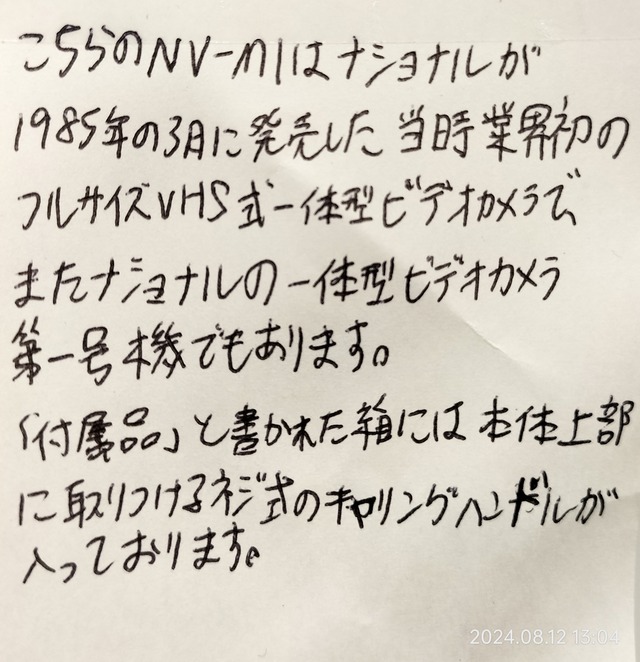 こちらのNV-M1はナショナルが
1985年の3月に発売した当時業界初の
フルサイズVHS式一体型ビデオカメラで、
またナショナルの一体型ビデオカメラ
第一号機でもあります。
「付属品」と書かれた箱には本体上部
に取りつけるネジ式のキャリングハンドルが
入っております。
2024.08.12 13:04